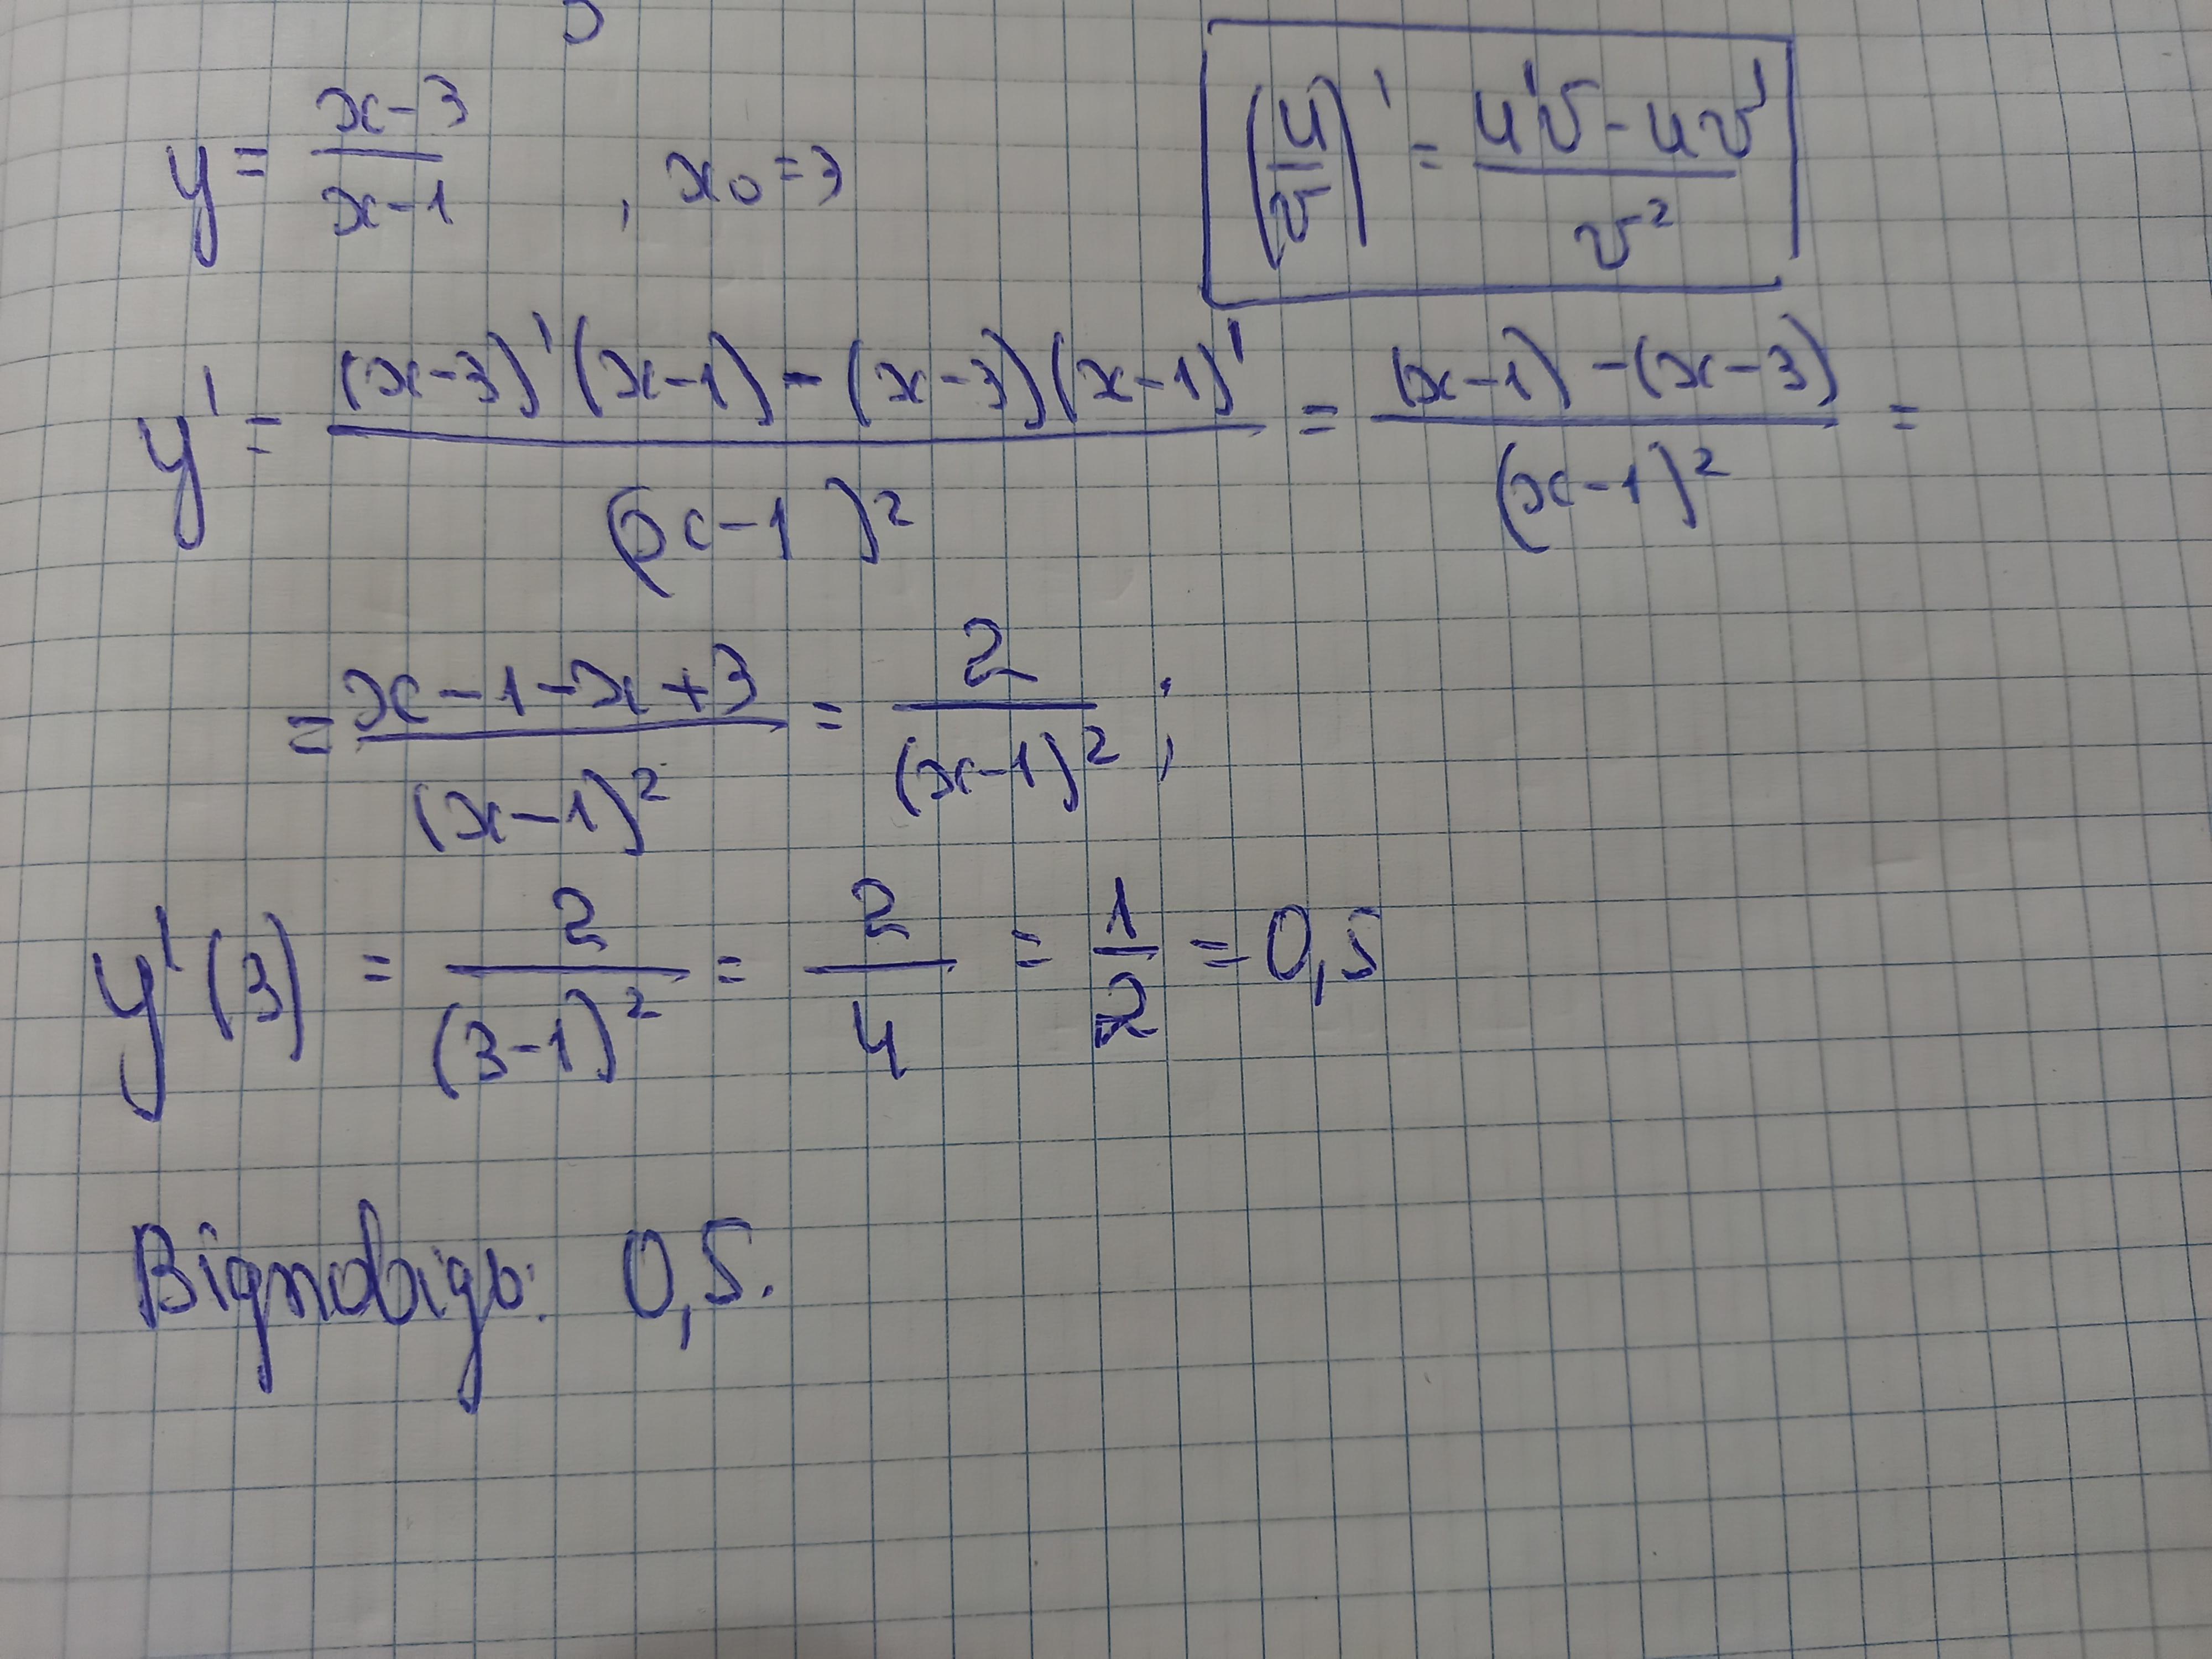 y = (x-3)/(x-1) , x₀ = 3
(u/v)' = (u'v - uv')/v²
y' = ((x-3)'(x-1) - (x-3)(x-1)')/(x-1)² = ((x-1) - (x-3))/(x-1)² =
= (x-1-x+3)/(x-1)² = 2/(x-1)² ;
y'(3) = 2/(3-1)² = 2/4 = 1/2 = 0,5
Відповідь: 0,5.